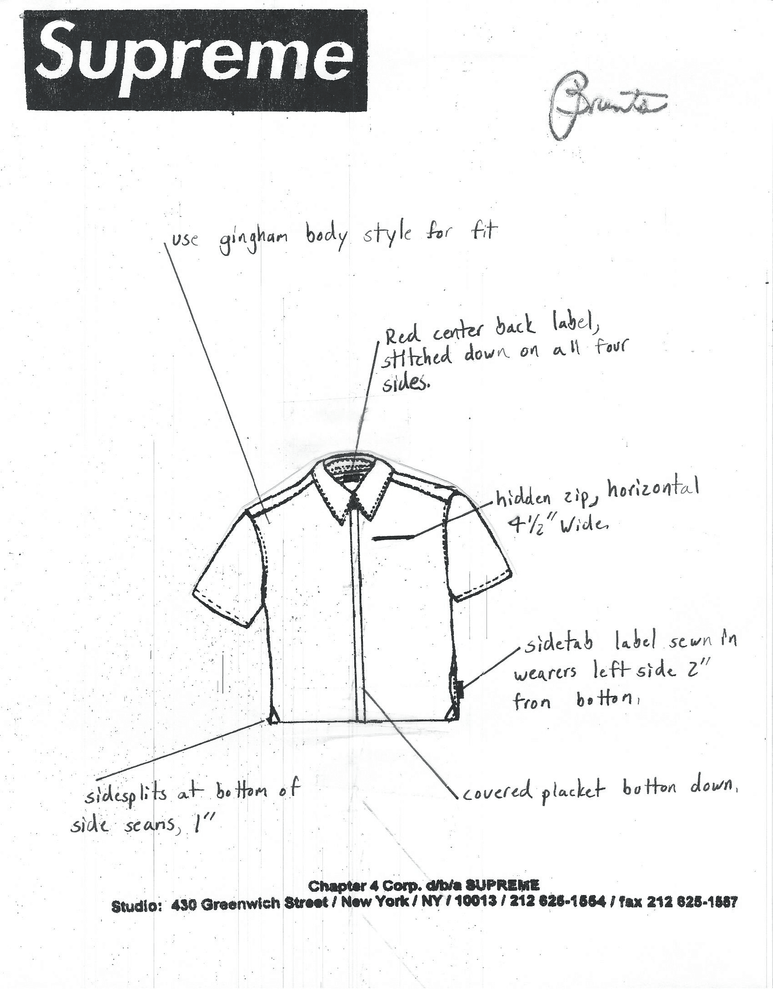 Supreme
use gingham body style for fit
Red center back label,
stitched down on all four
sides.
hidden zip, horizontal
4 1/2" wide.
sidetab label sewn in
wearers left side 2"
from bottom.
covered placket button down.
sidesplits at bottom of
side seams, 1"
Chapter 4 Corp. d/b/a SUPREME
Studio: 430 Greenwich Street / New York / NY / 10013 / 212 625-1554 / fax 212 625-1557